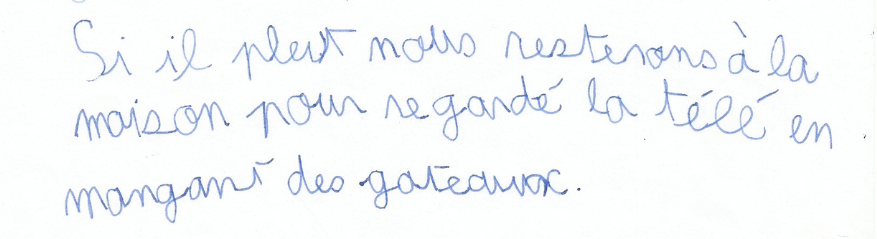 Si il pleut nous resterons à la
maison pour regardé la télé en
mangant des gateaux.